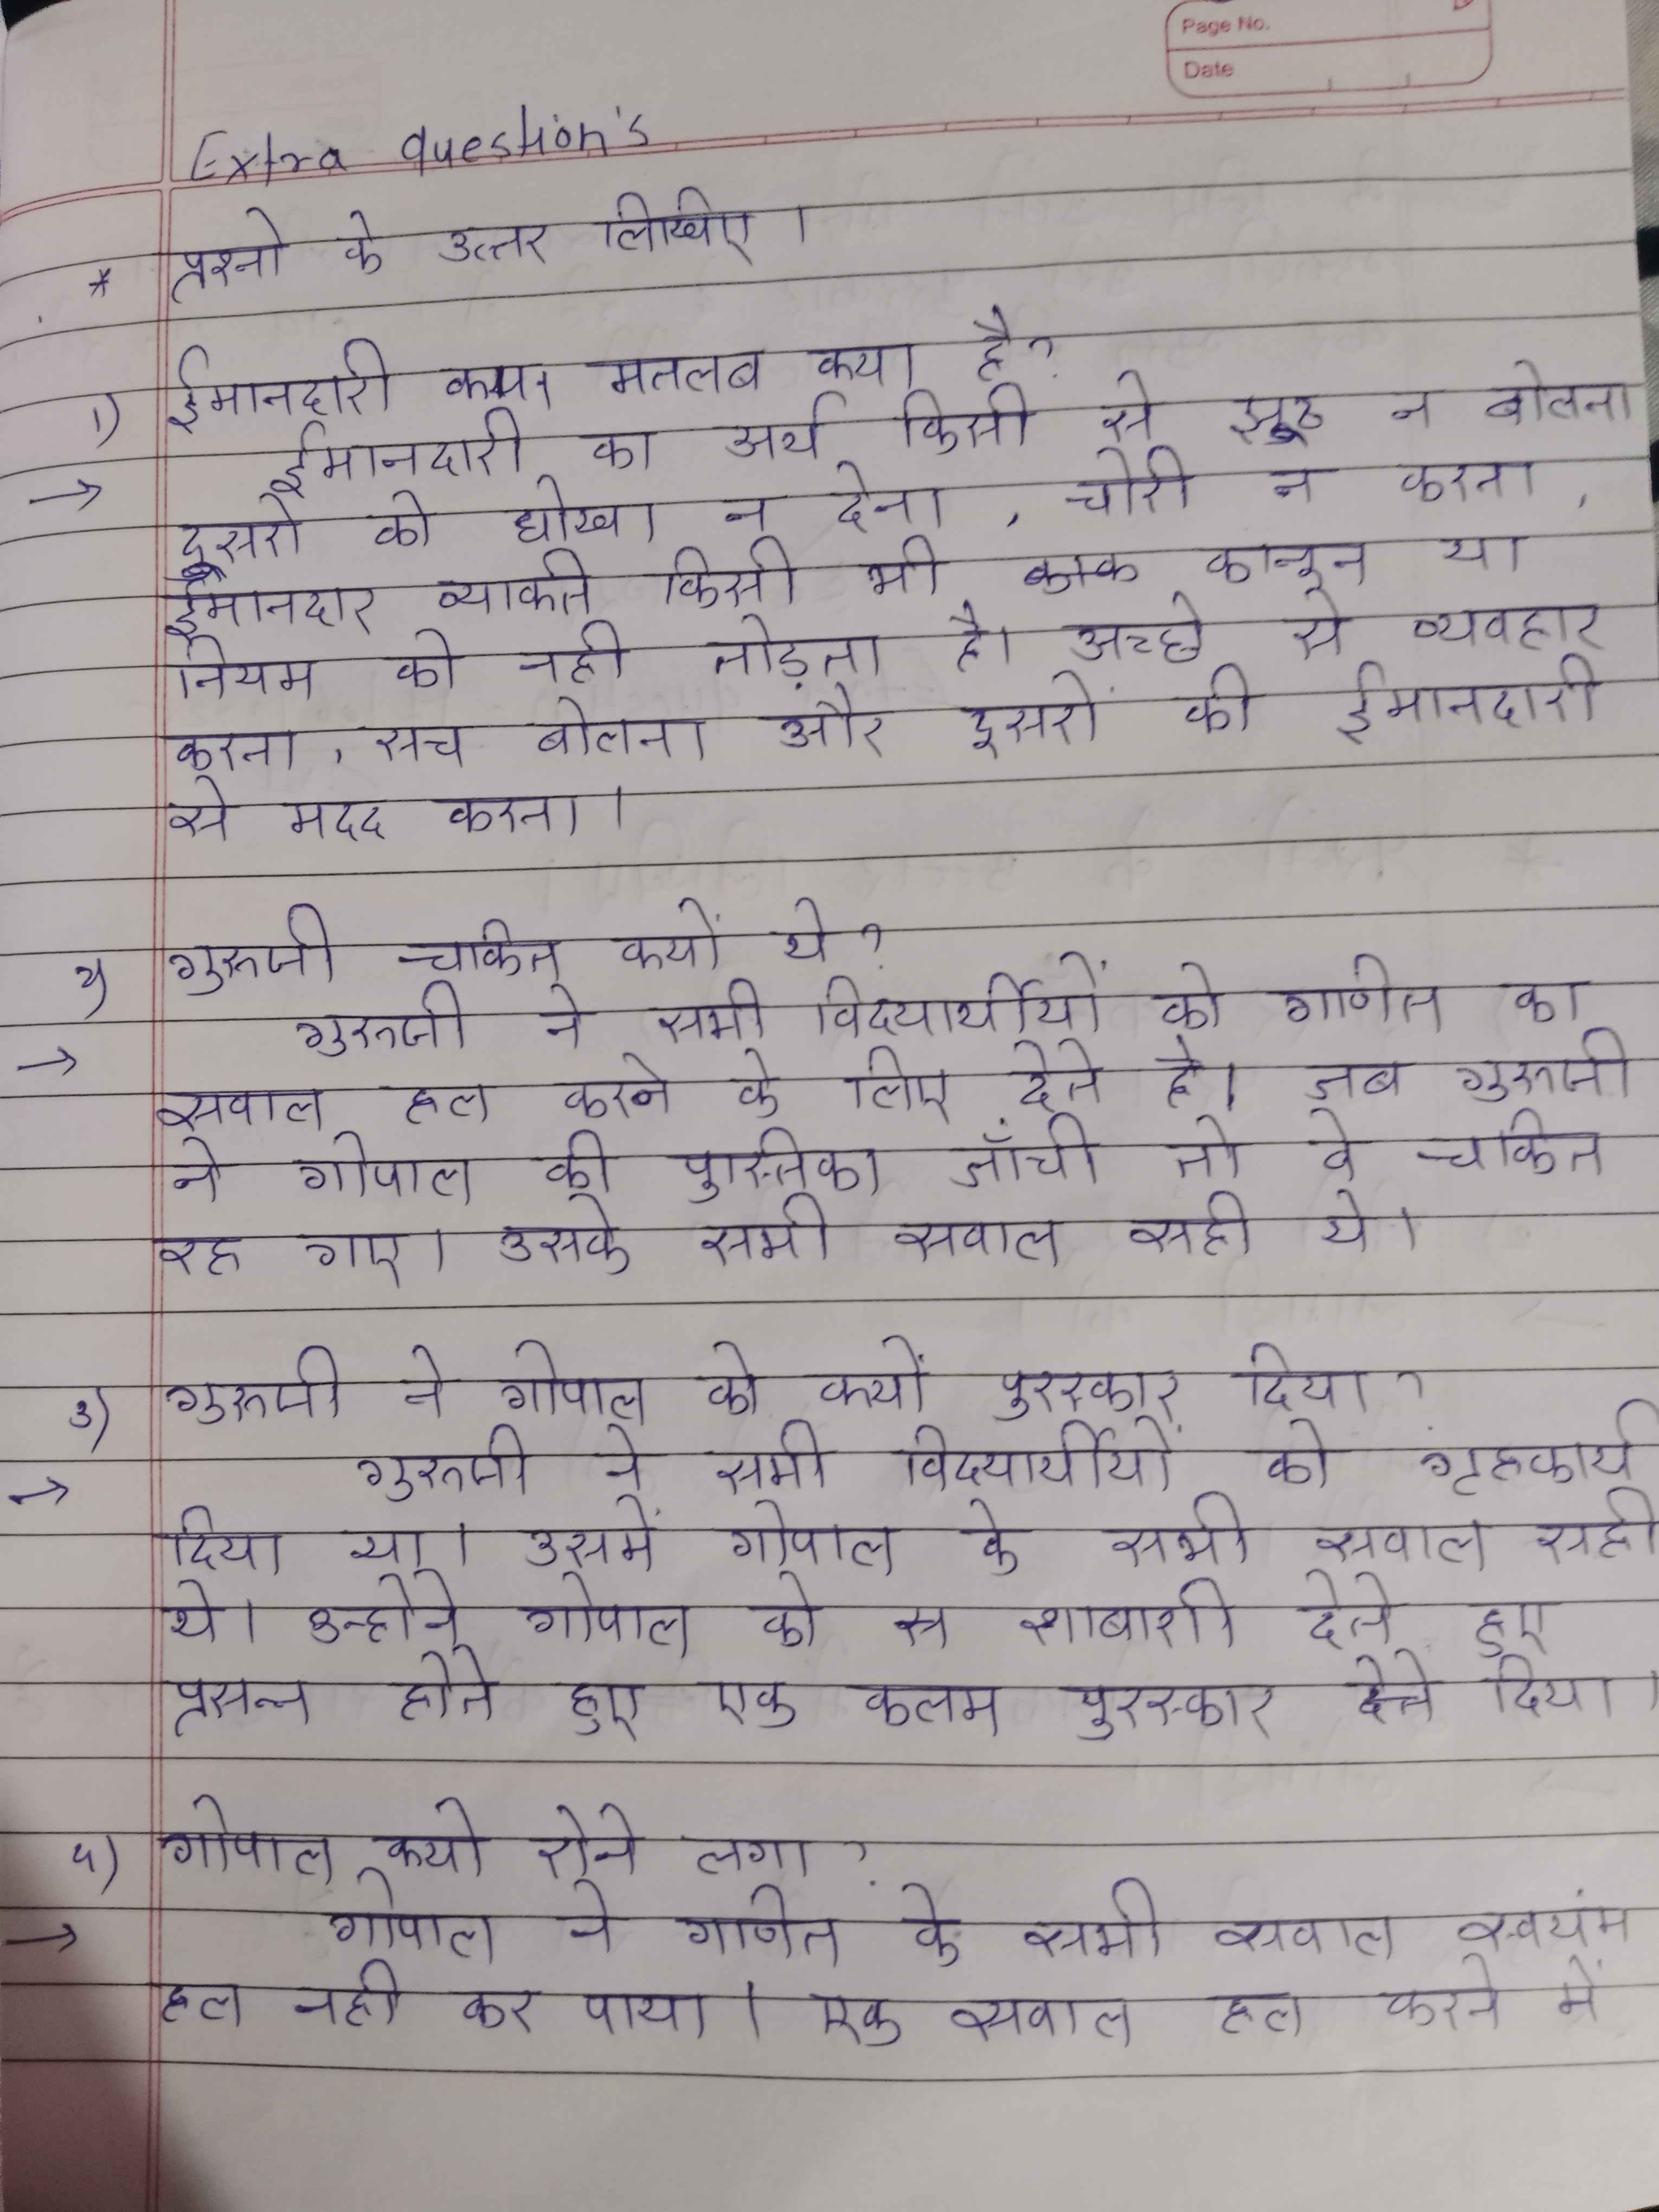 Page No.
Date
Extra question's
* प्रश्नो के उत्तर लिखिए ।
1) ईमानदारी का मतलब क्या है?
→ ईमानदारी का अर्थ किसी से झूठ न बोलना
दूसरो को धोखा न देना , चोरी न करना ,
ईमानदार व्यक्ति किसी भी कानून या
नियम को नही तोड़ता है। अच्छे से व्यवहार
करना , सच बोलना और दूसरों की ईमानदारी
से मदद करना ।
२) गुरुजी चकित क्यों थे ?
→ गुरुजी ने सभी विद्यार्थीयों को गणित का
सवाल हल करने के लिए देते है। जब गुरुजी
ने गोपाल की पुस्तिका जाँची तो वे चकित
रह गए। उसके सभी सवाल सही थे ।
3) गुरुजी ने गोपाल को क्यों पुरस्कार दिया ?
→ गुरुजी ने सभी विद्यार्थीयों को गृहकार्य
दिया था। उसमें गोपाल के सभी सवाल सही
थे। उन्होने गोपाल को शाबाशी देते हुए
प्रसन्न होते हुए एक कलम पुरस्कार दिया ।
4) गोपाल क्यो रोने लगा ?
→ गोपाल ने गणित के सभी सवाल स्वयंम
हल नही कर पाया । एक सवाल हल करने में